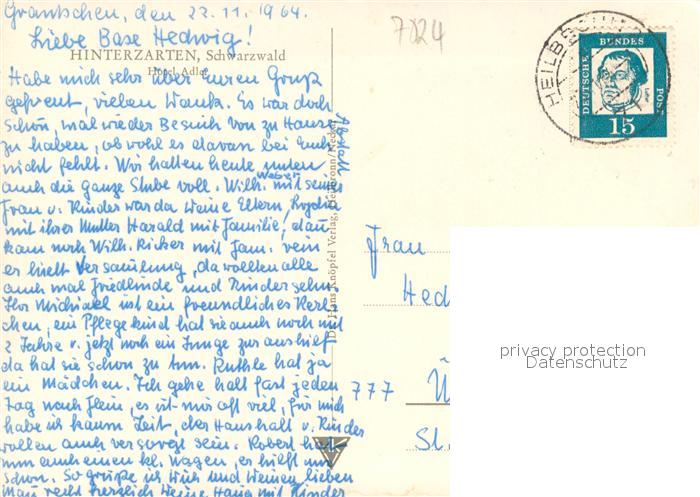 Grantschen, den 22.11.1964.
Liebe Base Hedwig!
HINTERZARTEN, Schwarzwald
Hotel Adler
Habe mich sehr über euren Gruß
gefreut, vielen Dank. Es war doch
schön, mal wieder Besuch von zu Hause
zu haben, obwohl es davon bei Euch
nicht fehlt. Wir hatten heute
auch die ganze Stube voll. Wilh. Weber mit seiner
Frau u. Kinder war da meine Eltern, Lydia
mit ihrer Mutter Harald mit Familie, dann
kam noch Wilh. Ricker mit Fam. rein
er hielt Versammlung, da wollten alle
auch mal Friedlinde und Kinder sehn.
Ihr Michael ist ein freundliches Kerl-
chen, ein Pflegekind hat sie auch noch mit
2 Jahre u. jetzt noch ein Junge zur aushilf
da hat sie schon zu tun. Ruthle hat ja
ein Mädchen. Ich gehe halt fast jeden
Tag nach Flein, es ist mir oft viel, für mich
habe ich kaum Zeit, der Haushalt u. Kinder
wollen auch versorgt sein. Robert hat
nun auch einen kl. Wagen, er hilft mir
schon. So grüße ich Dich und Deinen lieben
Mann recht herzlich Deine mit Kinder
Dr. Hans Knöpfel Verlag, Heilbronn/Neckar
7024
HEILBRONN
DEUTSCHE BUNDESPOST
15
Frau
Hed
777
St.
privacy protection
Datenschutz